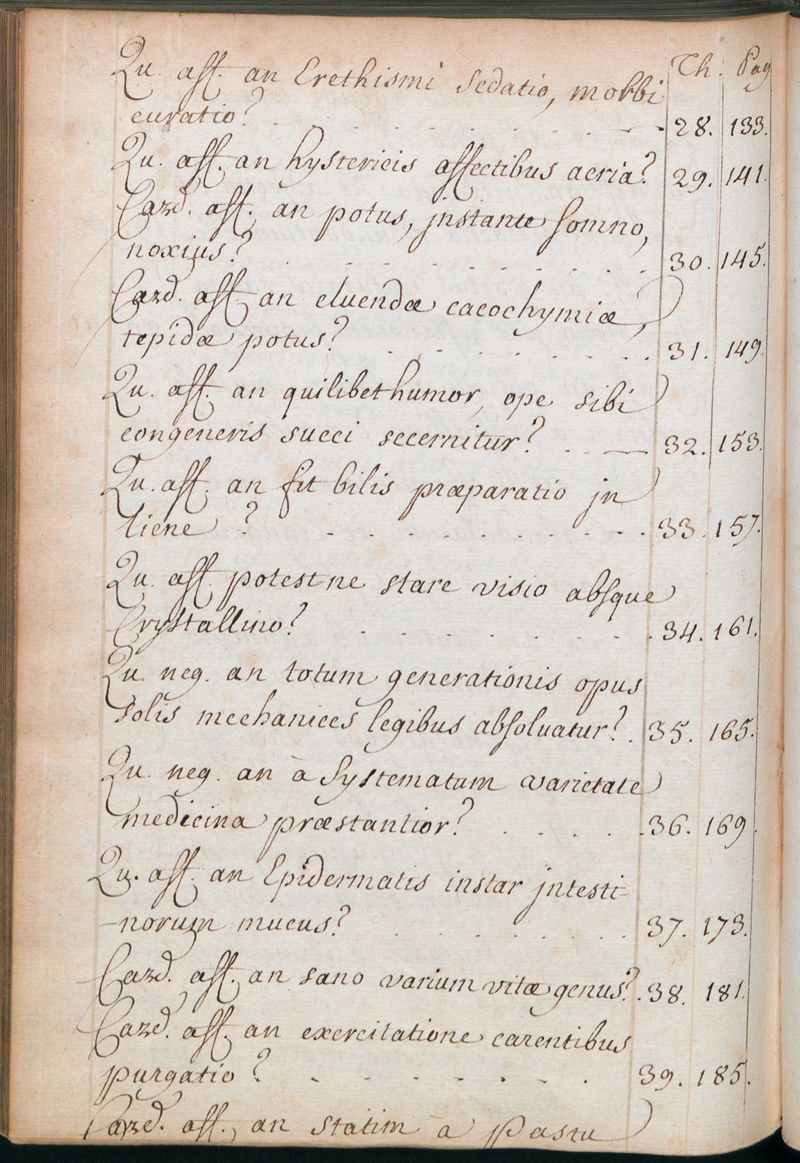 Th. Pag
Qu. aff. an Erethismi Sedatio, morbi
curatio? 28. 133.
Qu. aff. an hystericis affectibus aeria? 29. 141.
Card. aff. an potus, jnstante Somno,
noxius? 30. 145.
Card. aff. an eluendæ cacochymiæ,
tepidæ potus? 31. 149.
Qu. aff. an quilibet humor, ope sibi
congeneris succi secernitur? 32. 153.
Qu. aff. an fit bilis præparatio jn
liene? 33. 157.
Qu. aff. potestne stare visio absque
Crystallino? 34. 161.
Qu. neg. an totum generationis opus
solis mechanices legibus absoluatur? 35. 165.
Qu. neg. an à Systematum varietate
medicina præstantior? 36. 169.
Qu. aff. an Epidermatis instar jntesti-
-norum mucus? 37. 173.
Card. aff. an sano varium vitæ genus? 38. 181.
Card. aff. an exercitatione carentibus
purgatio? 39. 185.
Card. aff. an statim à Pastu